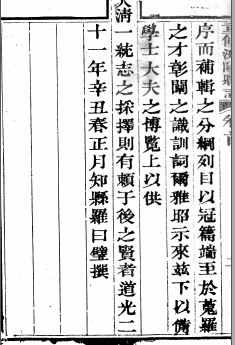 重修涪陵縣志 卷首
序而補輯之分綱列目以冠篇端至於蒐羅
之才彰闡之識訓詞爾雅昭示來茲下以備
學士大夫之博覽上以供
大清一統志之採擇則有賴于後之賢者道光二
十一年辛丑春正月知縣羅曰璧撰